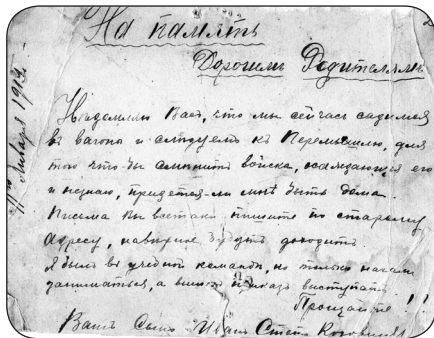 На память
Дорогимъ Родителямъ
11го Января 1915 г.
Увѣдомляю Васъ, что мы сейчасъ садимся
въ вагоны и слѣдуемъ къ Перемышлю, для
того что-бы смѣнить войска, осаждающія его
и незнаю, придется-ли мнѣ быть дома.
Письма вы всетаки пишите по старому
адресу, навѣрное будутъ доходить.
Я былъ въ учебной командѣ, но только начали
заниматься, а вышелъ приказъ выступать.
Прощайте!!
Вашъ Сынъ Иванъ Степ.